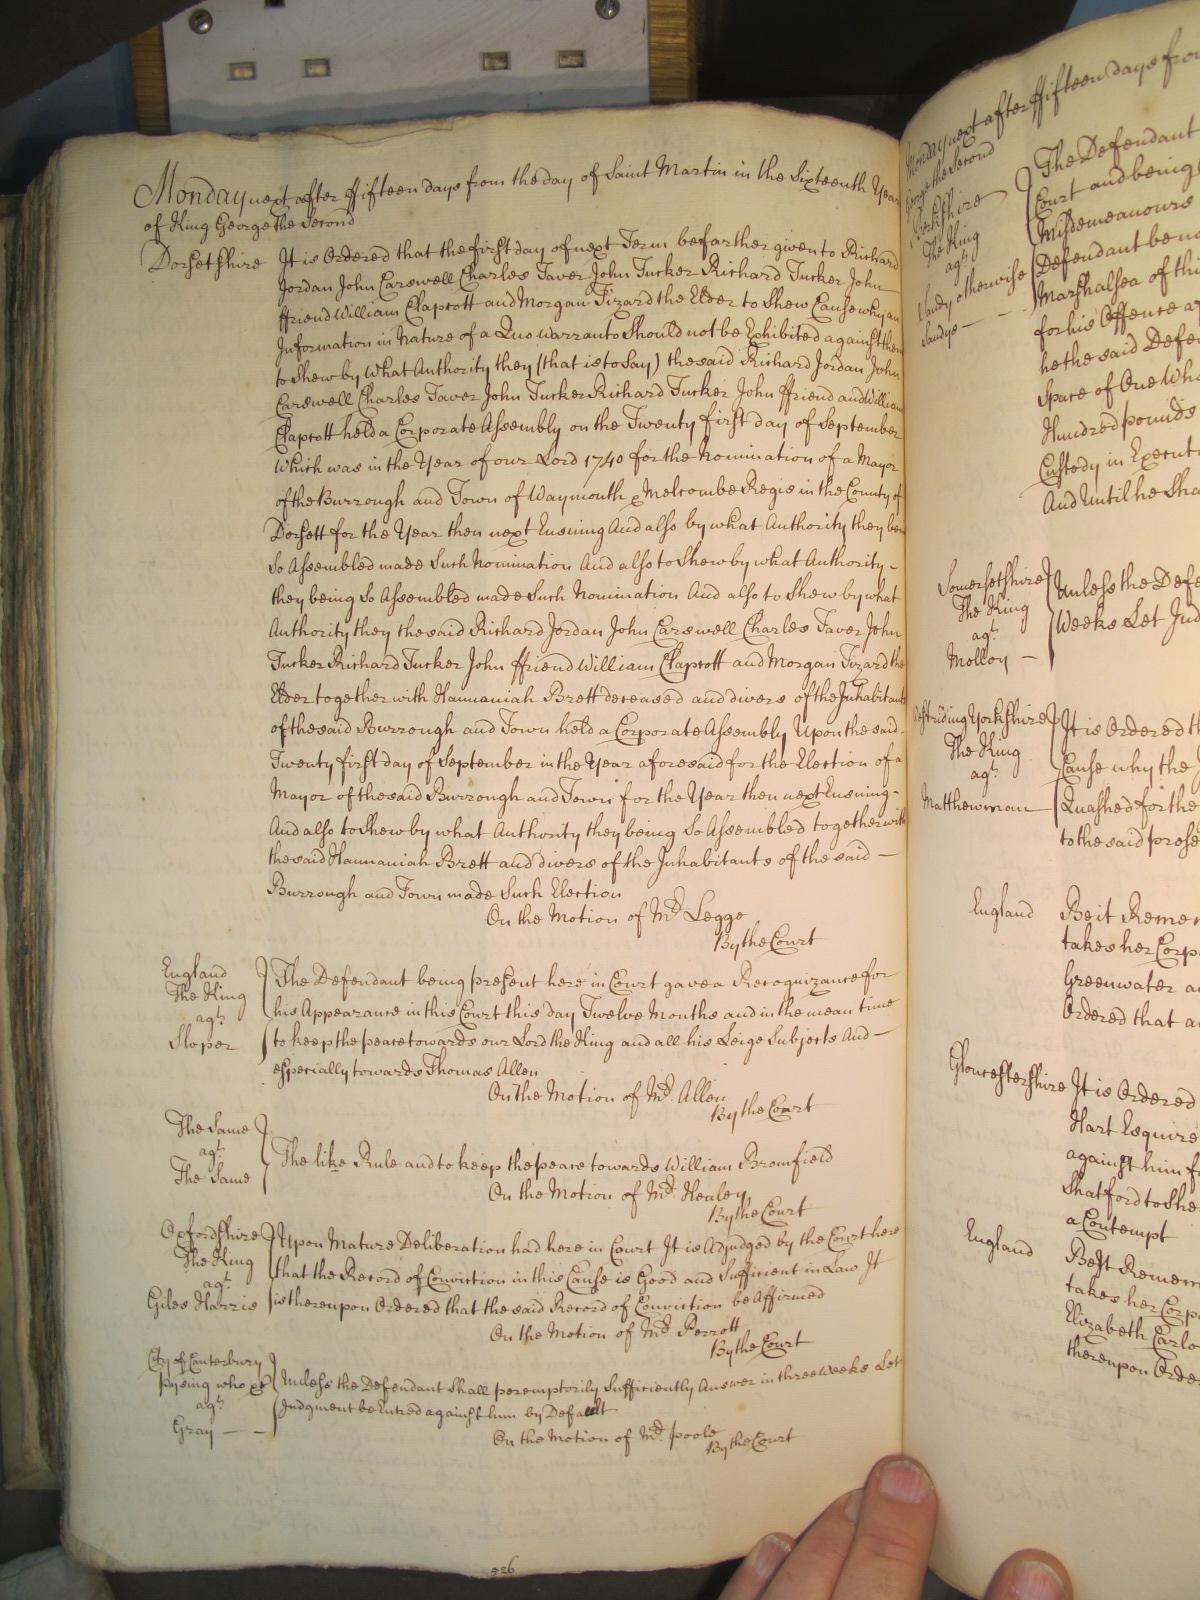 Monday next after ffifteen days from the day of Saint Martin in the Sixteenth Year
of King George the Second
Dorsetshire It is Ordered that the first day of next Term be farther given to Richard
Jordan John Carswell Charles Taver John Tucker Richard Tucker John
ffriend William Claprott and Morgan Tizard the Elder to Shew Cause why an
Information in Nature of a Quo Warranto Should not be Exhibited against them
to Shew by What Authority they (that is to Say) the said Richard Jordan John
Carswell Charles Taver John Tucker Richard Tucker John ffriend and William
Claprott held a Corporate Assembly on the Twenty first day of September
Which was in the Year of our Lord 1740 for the Nomination of a Mayor
of the Burrough and Town of Waymouth & Melcombe Regis in the County of
Dorsett for the Year then next Ensuing And also by what Authority they being
So Assembled made Such Nomination And also to Shew by what Authority -
they being So Assembled made Such Nomination And also to Shew by what
Authority they the said Richard Jordan John Carswell Charles Taver John
Tucker Richard Tucker John ffriend William Claprott and Morgan Tizard the
Elder together with Hannaniah Brett deceased and divers of the Inhabitants
of the said Burrough and Town held a Corporate Assembly Upon the said
Twenty first day of September in the Year aforesaid for the Election of a
Mayor of the said Burrough and Town for the Year then next Ensuing -
And also to Shew by what Authority they being So Assembled together with
the said Hannaniah Brett and divers of the Inhabitants of the said —
Burrough and Town made Such Election
On the Motion of Mr. Legge
By the Court
England
The King
agt.
Sloper
The Defendant being present here in Court gave a Recognizance for
his Appearance in this Court this day Twelve Months and in the mean time
to keep the peace towards our Lord the King and all his Leige Subjects And —
especially towards Thomas Allen
On the Motion of Mr. Allen
By the Court
The Same
agt.
The Same
The like Rule and to keep the peace towards William Bromfield
On the Motion of Mr. Henley
By the Court
Oxfordshire
The King
agt.
Giles Harris
Upon Mature Deliberation had here in Court It is Adjudged by the Court here
that the Record of Conviction in this Cause is Good and Sufficient in Law It
is thereupon Ordered that the said Record of Conviction be Affirmed
On the Motion of Mr. Perrott
By the Court
City of Canterbury
Pysing who &c
agt.
Gray — —
Unless the Defendant Shall peremptorily Sufficiently Answer in three Weeks Let
Judgment be Entred against him by Default
On the Motion of Mr. Poole
By the Court
526
Monday next after ffifteen days from
George the Second
Berkshire
The King
agt.
Vandy otherwise
Sandys — —
The Defendant
Court and being
Misdemeanours
Defendant be
Marshalsea of this
for his Offence
he the said
Space of One
Hundred pounds
Custody in
And Until he
Somersetshire
The King
agt.
Molloy —
Unless the
Weeks Let
Westriding Yorkshire
The King
agt.
Matthewman
It is Ordered
Cause why the
Quashed for the
to the said
England Be it
takes her
Greenwater
Ordered that
Gloucestershire It is Ordered
Hart Esquire
against him
Shatford to
a Contempt
England Be it
takes her
Elizabeth
thereupon